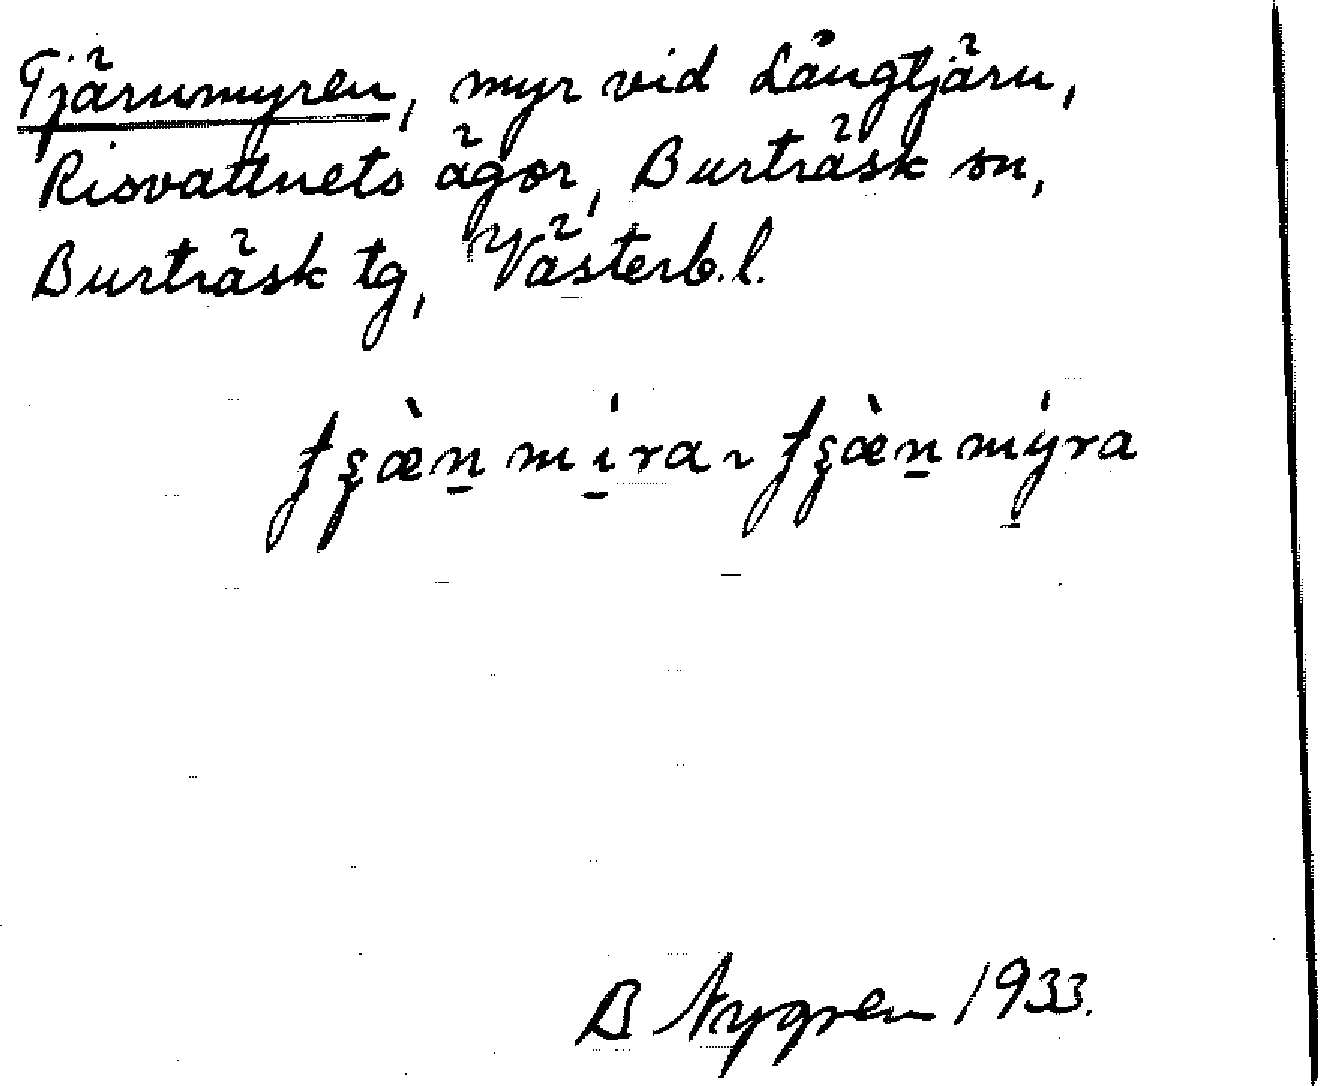 Tjärnmyren, myr vid Långtjärn,
Risvattnets ägor, Burträsk sn,
Burträsk tg, Västerb. l.
B Nygren 1933.